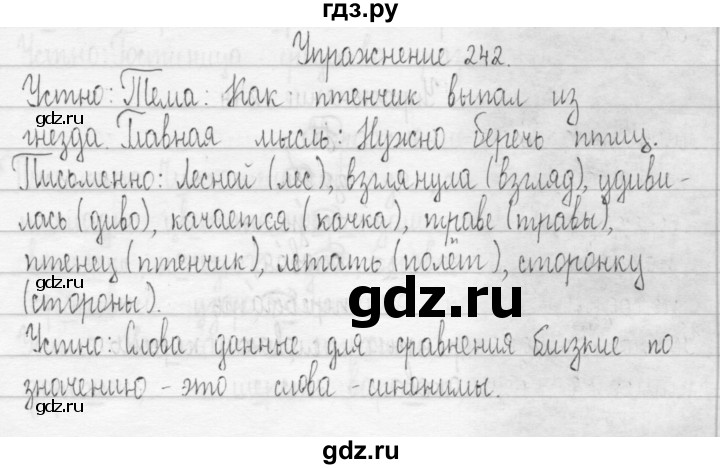 гдз.ру
Упражнение 242.
Устно: Тема: Как птенчик выпал из
gdz.ru
гнезда. Главная мысль: Нужно беречь птиц.
Письменно: Лесной (лес), взглянула (взгляд), удиви-
gdz.ru
лась (диво), качается (качка), траве (травы),
птенец (птенчик), летать (полёт), сторонку
gdz.ru
(стороны).
gdz.ru
Устно: Слова данные для сравнения близкие по
значению - это слова - синонимы.
gdz.ru
gdz.ru